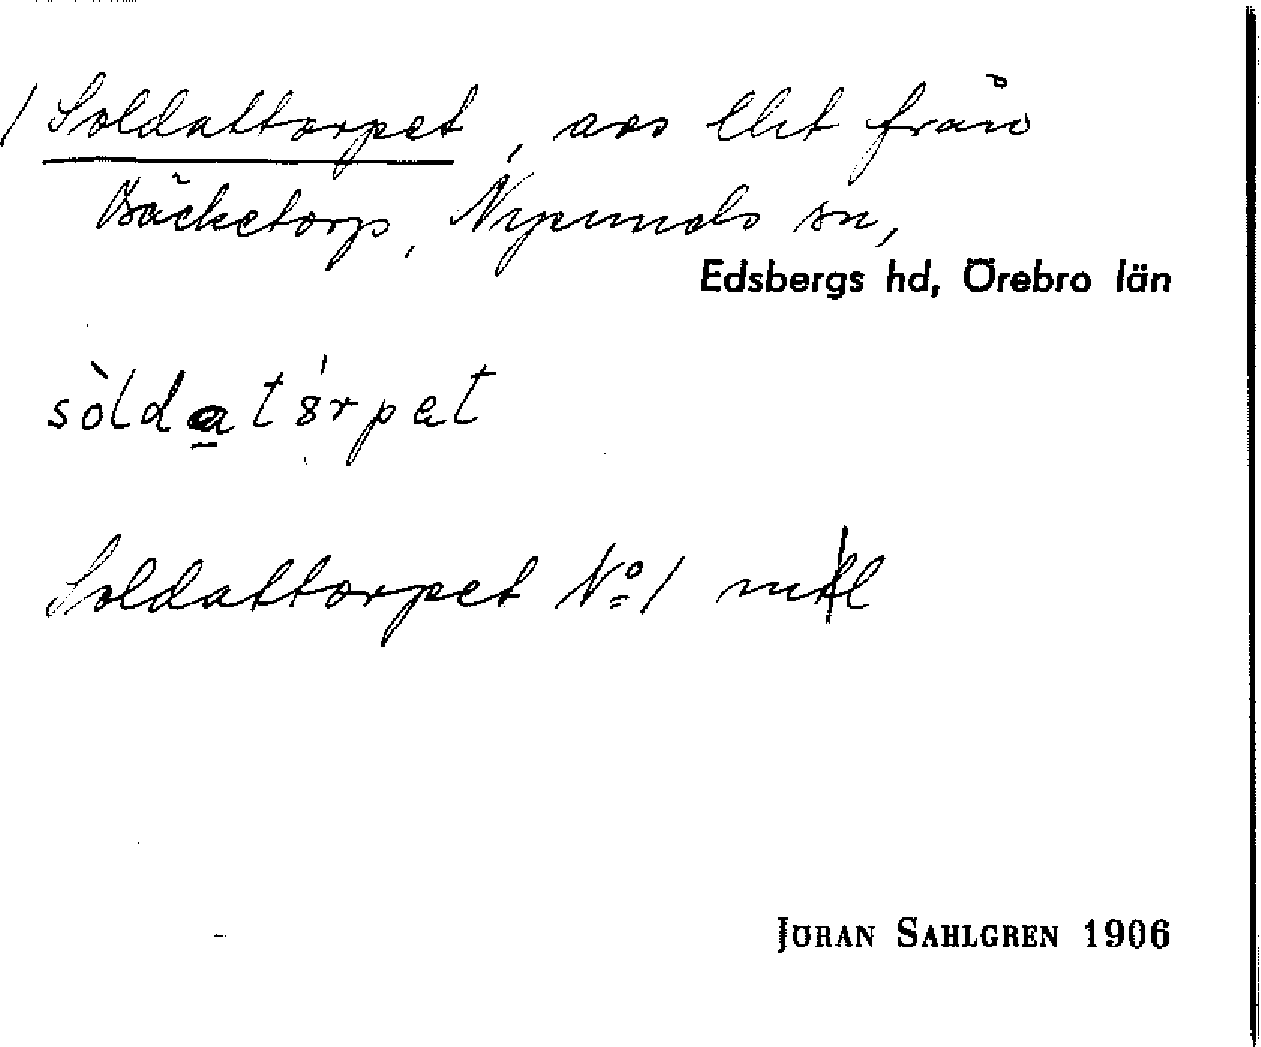 / Soldattorpet, avs lht från
Bäcketorp, Nysunds sn,
Edsbergs hd, Örebro län
sòldatórpet
Soldattorpet No 1 mtl
JÖRAN SAHLGREN 1906